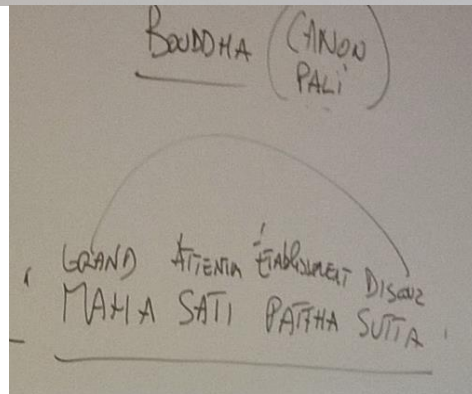 BOUDDHA (CANON
PALI)
GRAND ATTENTION ÉTABLISSEMENT DISCOURS
MAHA SATI PATTHA SUTTA